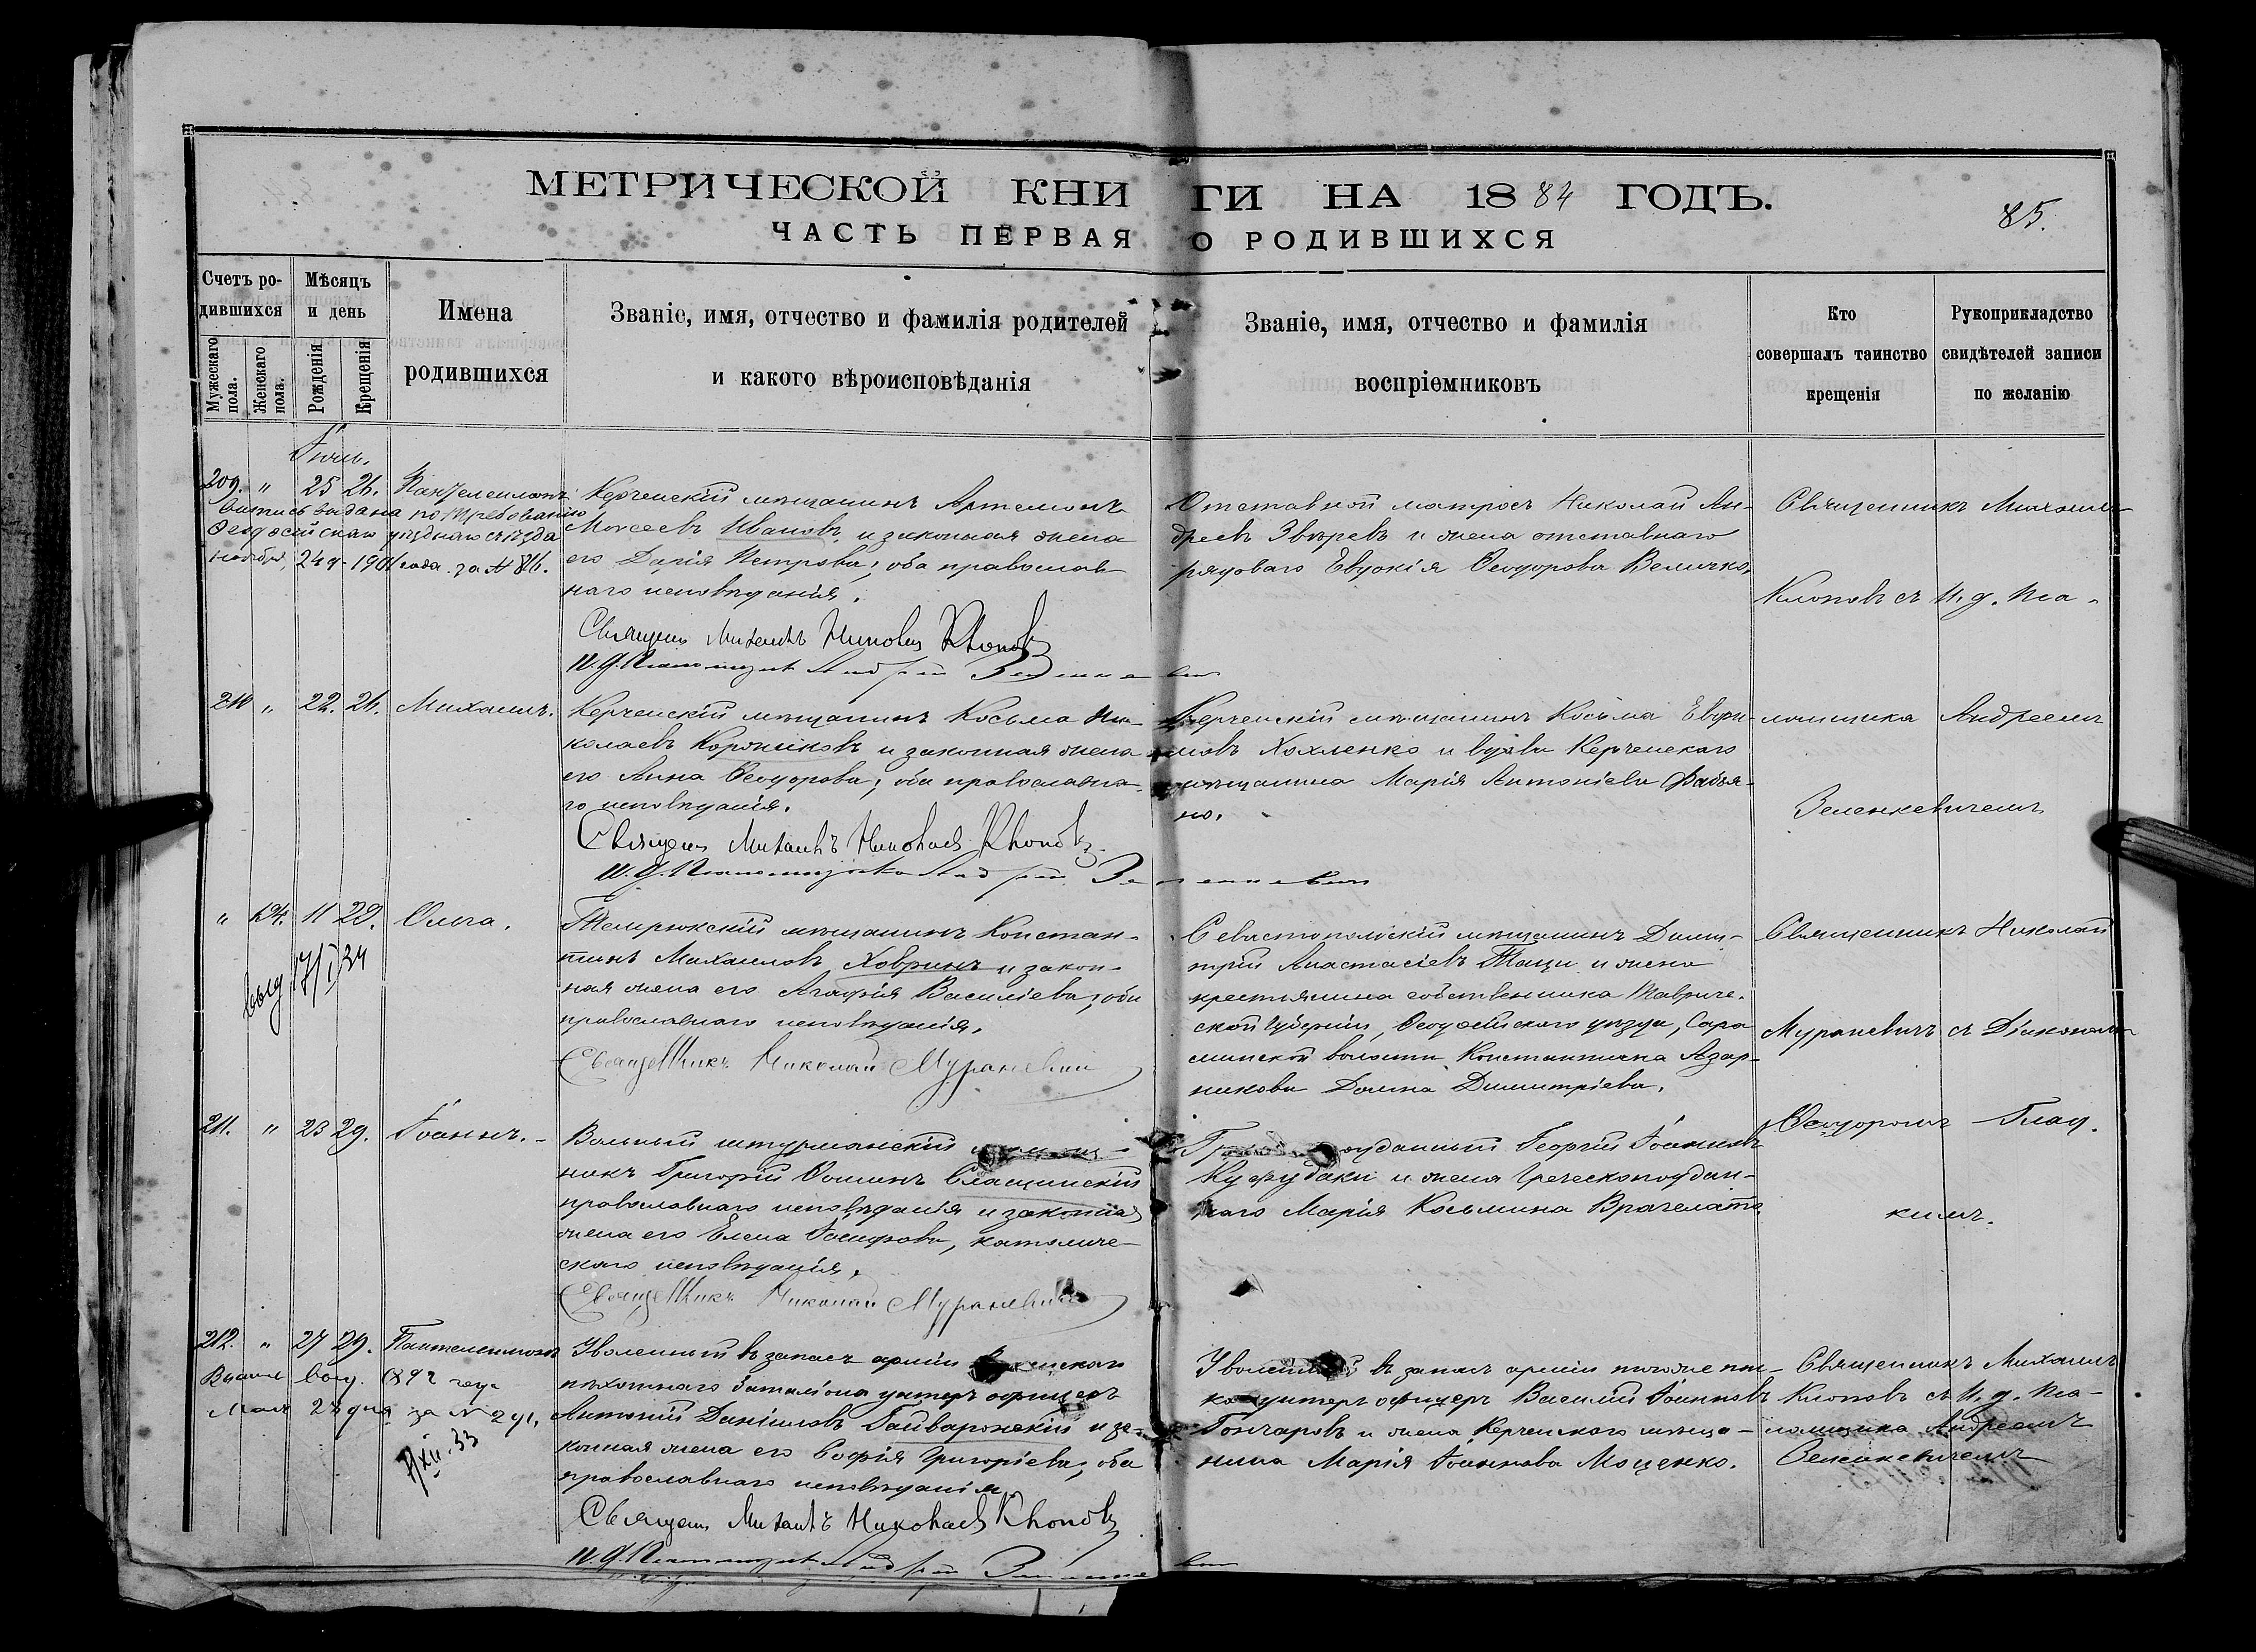 МЕТРИЧЕСКОЙ КНИГИ НА 1884 ГОДЪ.
85.
ЧАСТЬ ПЕРВАЯ О РОДИВШИХСЯ
Счетъ родившихся
Мужескаго пола.
Женскаго пола.
Мѣсяцъ и день
Рожденія
Крещенія
Имена родившихся
Званіе, имя, отчество и фамилія родителей
и какого вѣроисповѣданія
Званіе, имя, отчество и фамилія
воспріемниковъ
Кто
совершалъ таинство
крещенія
Рукоприкладство
свидѣтелей записи
по желанію
Іюль.
209. " 25 26. Пантелеимонъ.
Выпись выдана по требованію
Ѳеодосійскаго уѣзднаго съѣзда
ноября 24 д. 1901 года за №
Керченскій мѣщанинъ Артемонъ
Моисеевъ Ивановъ и законная жена
его Дарія Петрова; оба православ-
наго исповѣданія.
Священ. Михаилъ Николаев Клоповъ
И. д. Псаломщика Андрей Зеленкевич
Отставной матросъ Николай Ан-
дреевъ Звѣревъ и жена отставнаго
рядоваго Евдокія Ѳеодорова Величко.
Священникъ Михаилъ
Клоповъ съ И. д. Пса-
210 " 22. 26. Михаилъ.
Керченскій мѣщанинъ Косьма Ни-
колаевъ Коржиковъ и законная жена
его Анна Ѳеодорова; оба православна-
го исповѣданія.
Священ. Михаилъ Николаев Клоповъ.
И. д. Псаломщика Андрей Зеленкевич
Керченскій мѣщанинъ Косьма Евфи-
мовъ Хохленко и вдова Керченскаго
мѣщанина Марія Антоніева Фабья-
но.
ломщика Андреемъ
Зеленкевичемъ
" 194. 11 29. Ольга.
выд 17/I 34
Темрюкскій мѣщанинъ Констан-
тинъ Михаиловъ Ховринъ и закон-
ная жена его Агафія Василіева; оба
православнаго исповѣданія.
Священникъ Николай Мураневич
Севастопольскій мѣщанинъ Дими-
трій Анастасіевъ Тащи и жена
крестьянина собственника Тавриче-
ской губерніи, Ѳеодосійскаго уѣзда, Сара
минской волости Константина Азар-
никова Домна Димитріева.
Священникъ Николай
Мураневичъ съ Діакономъ
211. " 23 29. Іоаннъ.
Вольный штурманскій
никъ Григорій Ѳоминъ Слащинскій
православнаго исповѣданія и законная
жена его Елена Іосифова, католиче-
скаго исповѣданія.
Священникъ Николай Мураневич
подданный Георгій Іоанновъ
Куфудаки и жена Греческоподдан-
наго Марія Косьмина Врачелато.
Ѳеодоромъ Глад.
кимъ.
212. " 27 29. Пантелеимонъ
выд. 1892 года
Мая 27 дня за № 291.
7/XII. 33
Уволенный въ запасъ арміи
пѣхотнаго баталіона унтеръ офицеръ
Антоній Даніиловъ Гайваронскій и за-
конная жена его Софія Григоріева, оба
православнаго исповѣданія.
Священ. Михаилъ Николаев Клоповъ
И. д. Псаломщика Андрей Зеленкевич
Уволенный въ запасъ арміи
унтеръ офицеръ Василій Іоанновъ
Гончаровъ и жена Керченскаго мѣща-
нина Марія Іоаннова Моценко.
Священникъ Михаилъ
Клоповъ съ И. д. Пса-
ломщика Андреемъ
Зеленкевичемъ